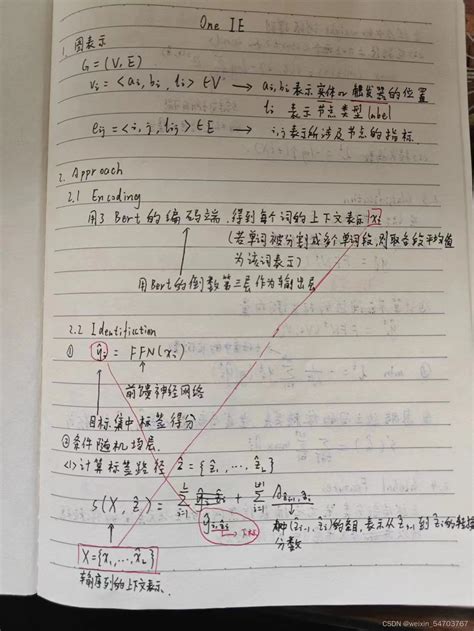 One IE
1. 图表示
G = (V, E)
vi = <ai, bi, li> ∈ V → ai, bi 表示实体or触发器的位置
li 表示节点类型label
eij = <i, j, lij> ∈ E → i, j表示所涉及节点的指标.
2. Approach
2.1 Encoding
用了Bert的编码端, 得到每个词的上下文表示xi
(若单词被分割成多个单词段, 则取各段平均值
为该词表示)
用Bert的倒数第三层作为输出层
2.2 Identification
① ŷi = FFN(xi)
前馈神经网络
目标集中标签得分
②条件随机场层.
<1>计算标签路径 ẑ = {ẑ1, ..., ẑL}
s(X, ẑ) = Σ i=1 L ŷi,ẑi + Σ i=1 L+1 Aẑi-1,ẑi
(ẑi-1, ẑi)的项目, 表示从ẑi-1到ẑi的转换
分数
X = {x1, ..., xL}
输入序列的上下文表示.
CSDN @weixin_54703767